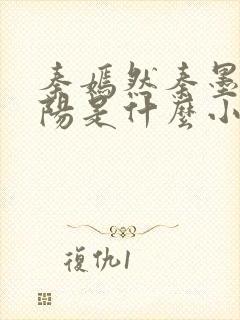 秦嫣然秦墨
陽是什麼小
復仇1